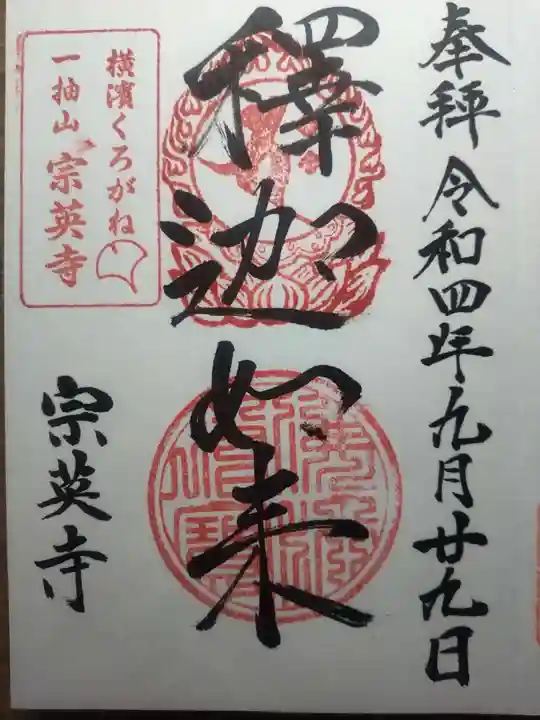 奉拜 令和四年九月廿九日
釋迦如来
横濱くろがね
一抽山 宗英寺
宗英寺